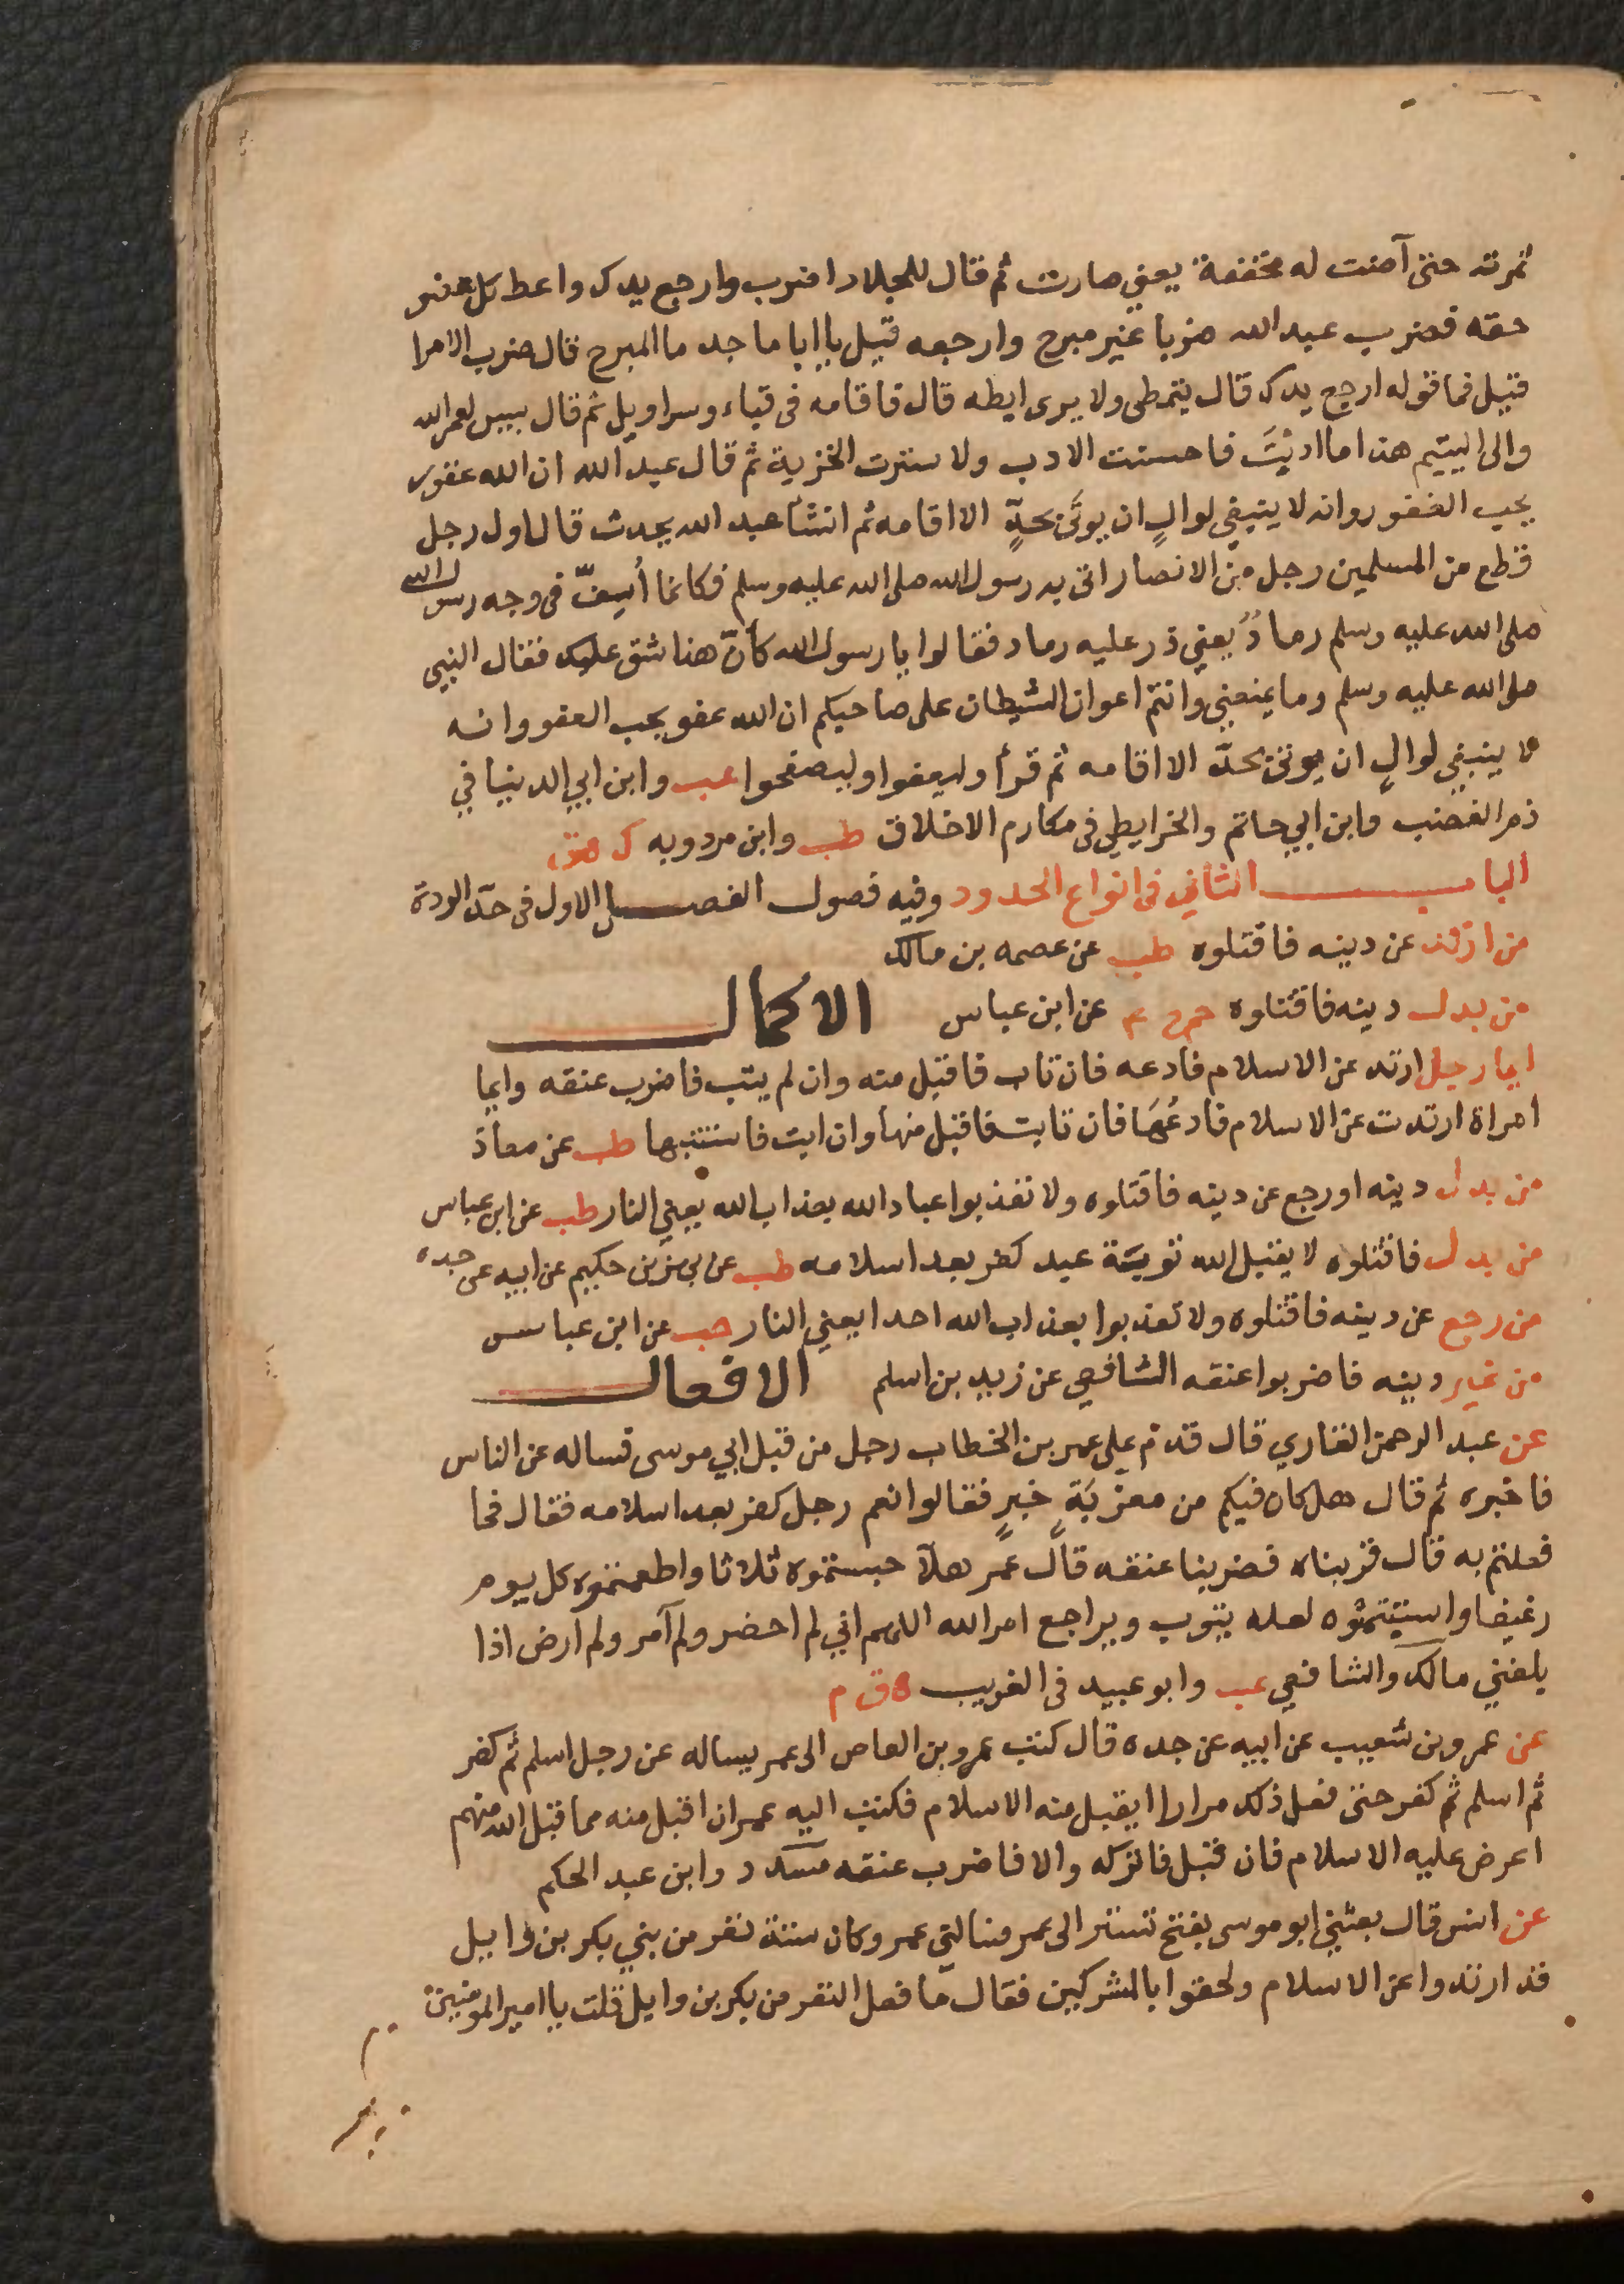 ثمرته حتى آضت له مخففة يعني صارت ثم قال للجلاد اضرب وارجع يدك واعط كل عضو
حقه فضرب عبد الله ضربا غير مبرح وارجعه قيل يا ابا ماجد ما المبرح قال ضرب الامرا
قيل فما قوله ارجع يدك قال يتمطى ولا يرى ابطه قال فاقامه فى قباء وسراويل ثم قال بيس لعمر الله
والى اليتيم هذا ما ادبت فاحسنت الادب ولا سترت الخزية ثم قال عبد الله ان الله غفور
يحب الغفور وانه لا ينبغي لوالٍ ان يوتى بحدٍّ الا اقامه ثم انشأ عبد الله يحدث قال اول رجل
قطع من المسلمين رجل من الانصار اتى به رسول الله صلى الله عليه وسلم فكانما أسفّ فى وجه رسول الله
صلى الله عليه وسلم رمادٌ يعني ذر عليه رماد فقالوا يا رسول الله كأنّ هذا شق عليك فقال النبي
صلى الله عليه وسلم وما يمنعني وانتم اعوان الشيطان على صاحبكم ان الله عفو يحب العفو وانه
لا ينبغي لوالٍ ان يوتى بحدّ الا اقامه ثم قرأ وليعفوا وليصفحوا عب وابن ابي الدنيا في
ذم الغضب وابن ابي حاتم والخرايطي فى مكارم الاخلاق طب وابن مردويه ك هق
الباب الثاني فى انواع الحدود وفيه فصول الفصل الاول فى حدّ الردة
من ارتد عن دينه فاقتلوه طب عن عصمه بن مالك
من بدل دينه فاقتلوه حم خ ٤ عن ابن عباس الاكمال
ايما رجل ارتد عن الاسلام فادعه فان تاب فاقبل منه وان لم يتب فاضرب عنقه وايما
امراة ارتدت عن الاسلام فادعُهَا فان تابت فاقبل منها وان ابت فاستتبها طب عن معاذ
من بدل دينه او رجع عن دينه فاقتلوه ولا تعذبوا عباد الله بعذاب الله يعني النار طب عن ابن عباس
من بدل فاقتلوه لا يقبل الله توبة عبد كفر بعد اسلامه طب عن بهز بن حكيم عن ابيه عن جده
من رجع عن دينه فاقتلوه ولا تعذبوا بعذاب الله احدا يعني النار حب عن ابن عباس
من غير دينه فاضربوا عنقه الشافعي عن زيد بن اسلم الافعال
عن عبد الرحمن القاري قال قدم على عمر بن الخطاب رجل من قبل ابي موسى فساله عن الناس
فاخبره ثم قال هل كان فيكم من مغرّبَةِ خبرٍ فقالوا نعم رجل كفر بعد اسلامه فقال فما
فعلتم به قال قربناه فضربنا عنقه قال عمر هلّا حبستموه ثلاثا واطعمتموه كل يوم
رغيفا واستتبتموه لعله يتوب ويراجع امر الله اللهم اني لم احضر ولم آمر ولم ارض اذا
بلغني مالك والشافعي عب وابو عبيد فى الغريب ق م
عن عمرو بن شعيب عن ابيه عن جده قال كتب عمرو بن العاص الى عمر يساله عن رجل اسلم ثم كفر
ثم اسلم ثم كفر حتى فعل ذلك مرارا ايقبل منه الاسلام فكتب اليه عمر ان اقبل منه مما قبل الله منهم
اعرض عليه الاسلام فان قبل فاتركه والا فاضرب عنقه مسدد وابن عبد الحكم
عن انس قال بعثني ابو موسى بفتح تستر الى عمر فسالني عمر وكان ستة نفر من بني بكر بن وايل
قد ارتدوا عن الاسلام ولحقوا بالمشركين فقال ما فعل النفر من بكر بن وايل قلت يا امير المومنين